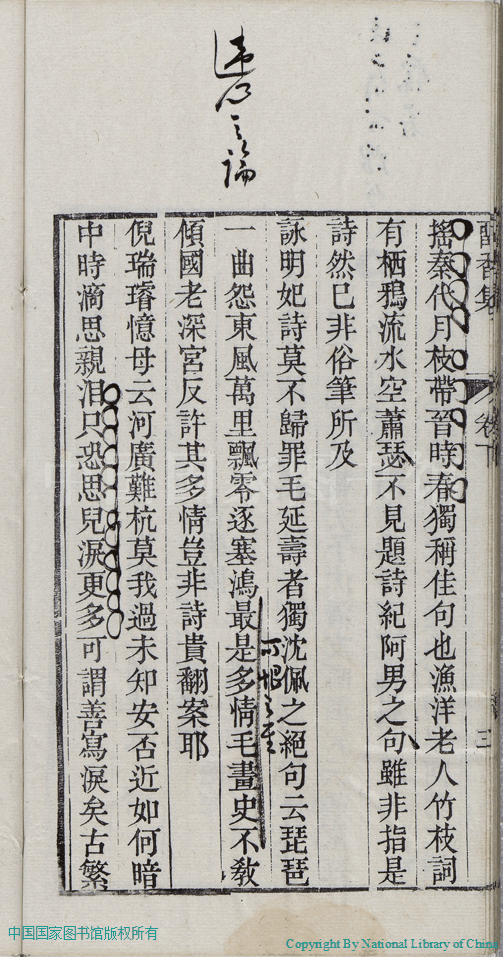 酣香集
卷下
三
搖秦代月枝帶晉時春獨稱佳句也漁洋老人竹枝詞
有栖鴉流水空蕭瑟不見題詩紀阿男之句雖非指是
詩然已非俗筆所及
詠明妃詩莫不歸罪毛延壽者獨沈佩之絕句云琵琶
一曲怨東風萬里飄零逐塞鴻最是多情毛畫史不敎
傾國老深宮反許其多情豈非詩貴翻案耶
倪瑞璿憶母云河廣難杭莫我過未知安否近如何暗
中時滴思親泪只恐思兒淚更多可謂善寫淚矣古繁
論
中国国家图书馆版权所有
Copyright By National Library of China